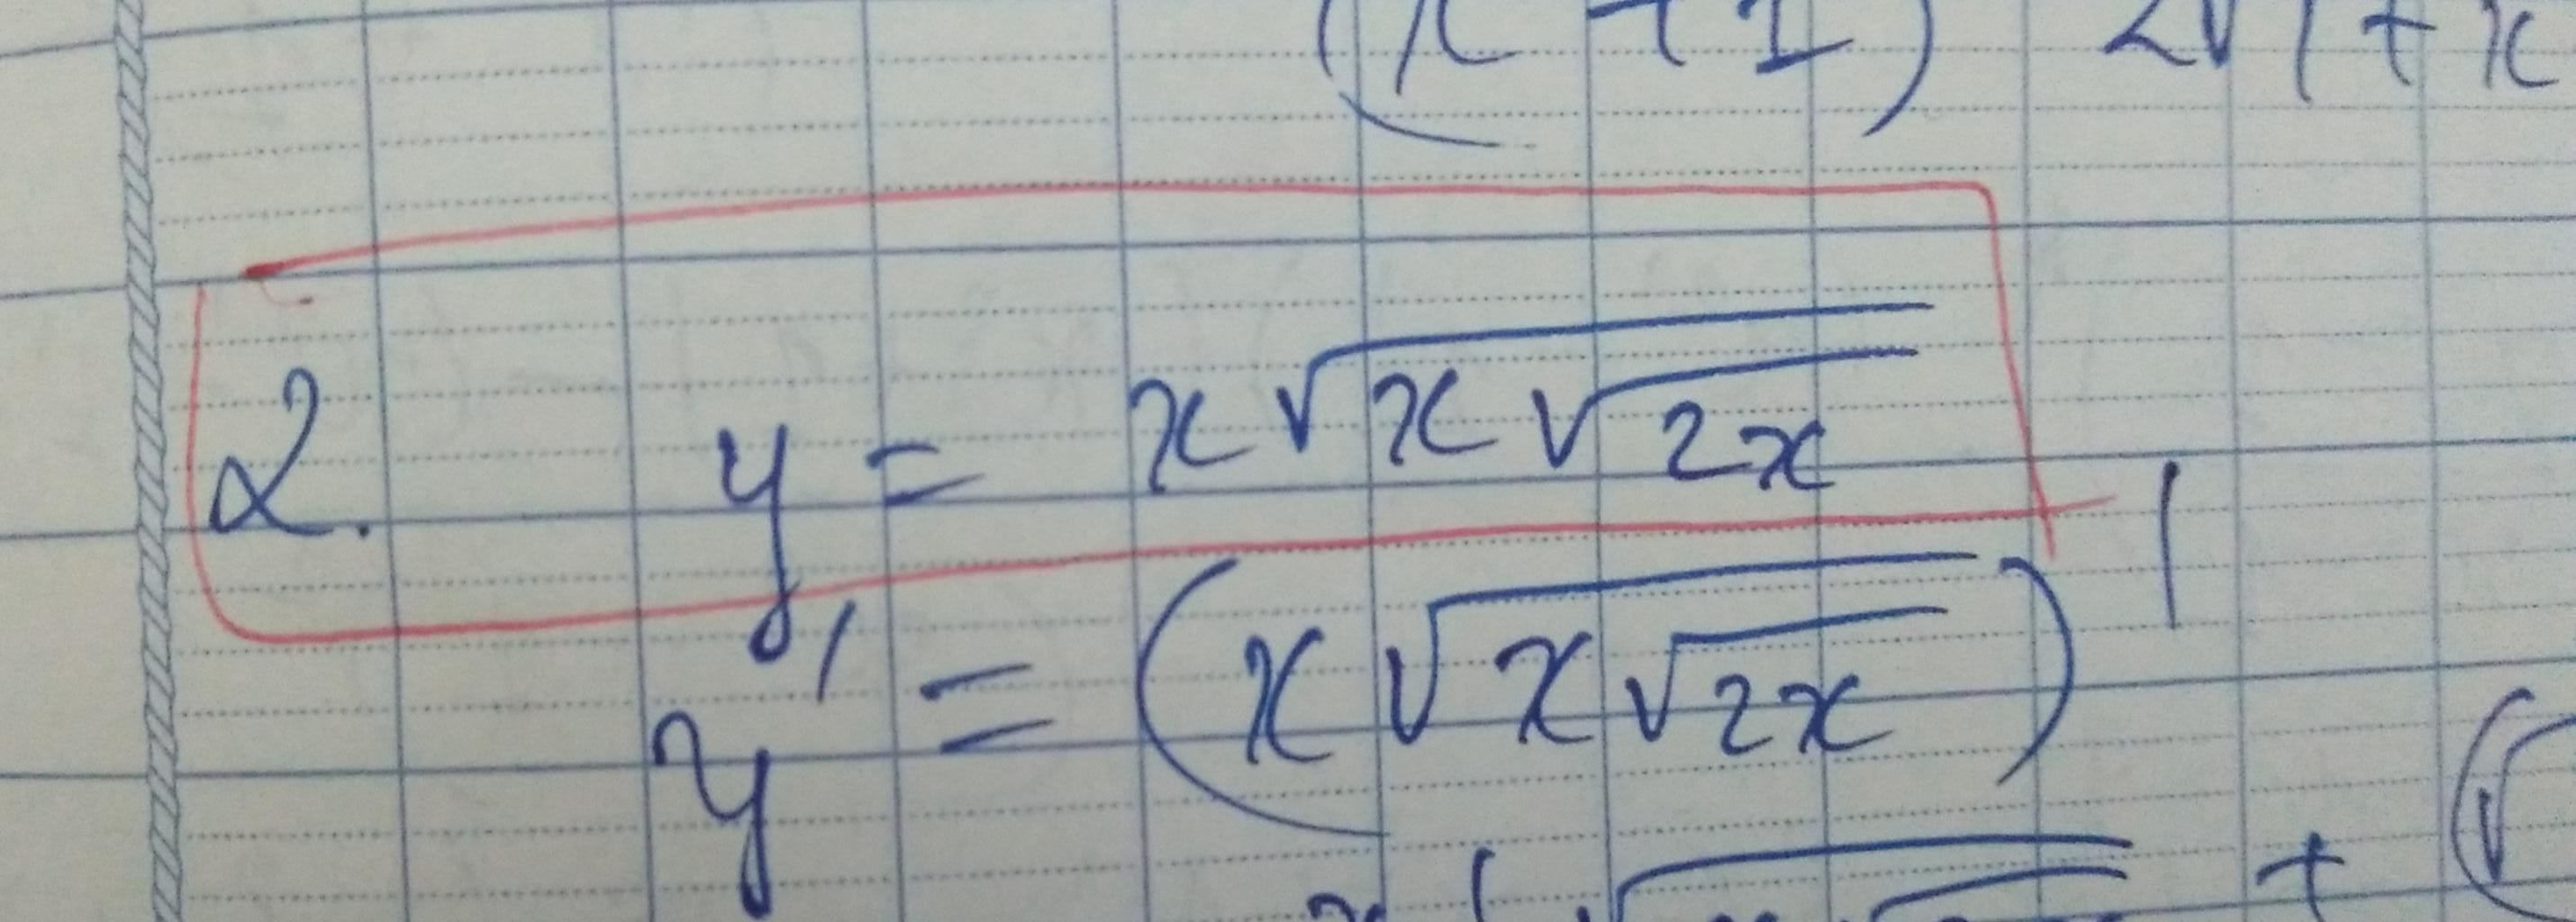 (x + 1) 2√1+x
2. y = x√(x√(2x))
y' = (x√(x√(2x)))'